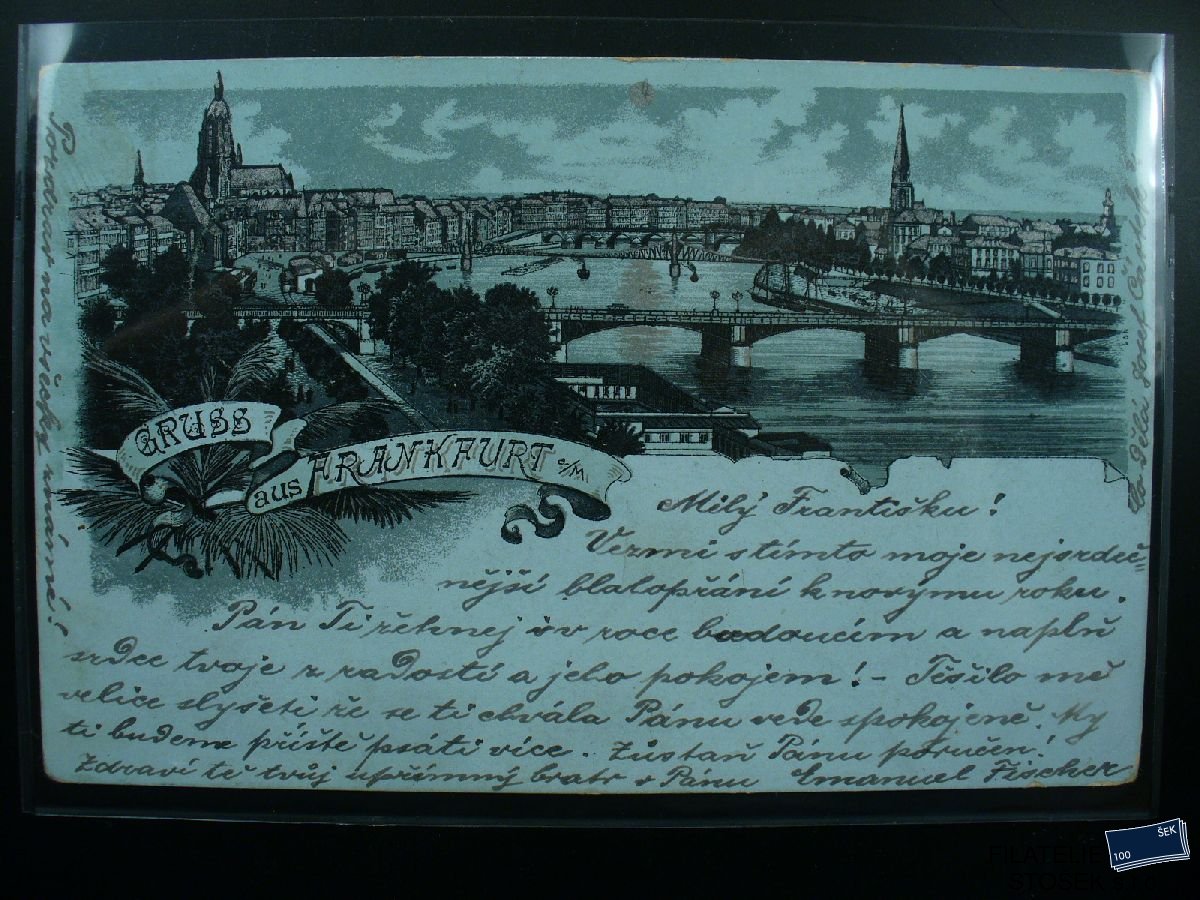 GRUSS
aus FRANKFURT a/M.
Milý Františku!
Vezmi s tímto moje nejsrdeč=
nější blahopřání k novýmu roku.
Pán Ti žehnej i v roce budoucím a naplň
srdce tvoje z radostí a jeho pokojem! - Těšilo mě
velice slyšeti že se ti chvála Pánu vede spokojeně. My
ti budeme příště psáti více. Zůstaň Pánu poručen!
Zdraví tě tvůj upřímný bratr v Pánu Emanuel Fischer
Pozdrav na všecky známé!
To Dělá Josef
FILATELIE
STOSEK
100 ŠEK